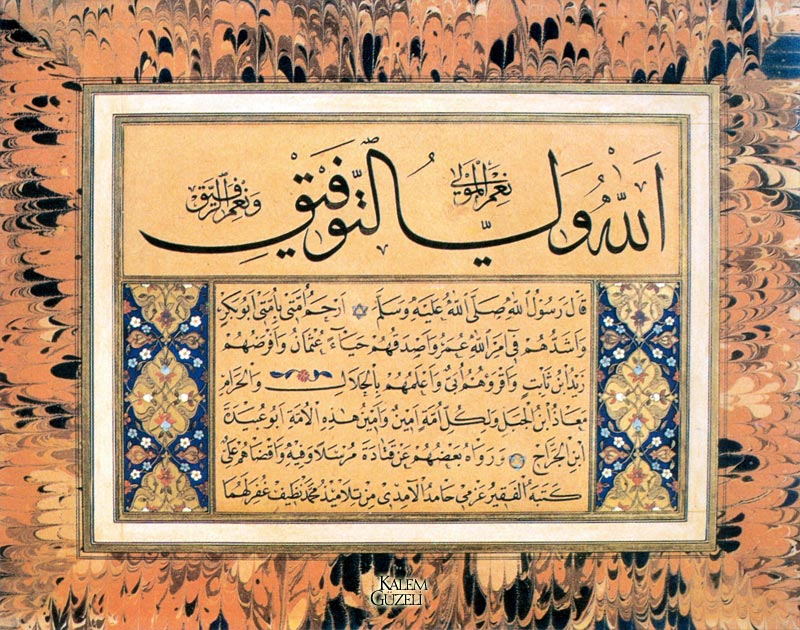 اَللّٰهُ وَلِيُّ التَّوْفِيقِ
نِعْمَ الْمَوْلٰى
وَنِعْمَ الرَّفِيقُ
قَالَ رَسُولُ اللّٰهِ صَلَّى اللّٰهُ عَلَيْهِ وَسَلَّمَ اَرْحَمُ اُمَّتِى بِاُمَّتِى اَبُو بَكْرٍ
وَاَشَدُّهُمْ فِى اَمْرِ اللّٰهِ عُمَرُ وَاَصْدَقُهُمْ حَيَاءً عُثْمَانُ وَاَفْرَضُهُمْ
زَيْدُ ابْنُ ثَابِتٍ وَاَقْرَؤُهُمْ اُبَىٌّ وَاَعْلَمُهُمْ بِالْحَلَالِ وَالْحَرَامِ
مَعَاذُ ابْنُ الْجَبَلِ وَلِكُلِّ اُمَّةٍ اَمِينٌ وَاَمِينُ هٰذِهِ الْاُمَّةِ اَبُو عُبَيْدَةَ
ابْنُ الْجَرَّاحِ وَرَوَاهُ بَعْضُهُمْ عَنْ قَتَادَةَ مُرْسَلًا وَفِيهِ وَاَقْضَاهُمْ عَلِىٌّ
كَتَبَهُ الْفَقِيرُ عَزْمِى حَامِدُ الْاٰمِدِى مِنْ تَلَامِيذِ مُحَمَّد نَظِيف غُفِرَ لَهُمَا
KALEM
GÜZELİ